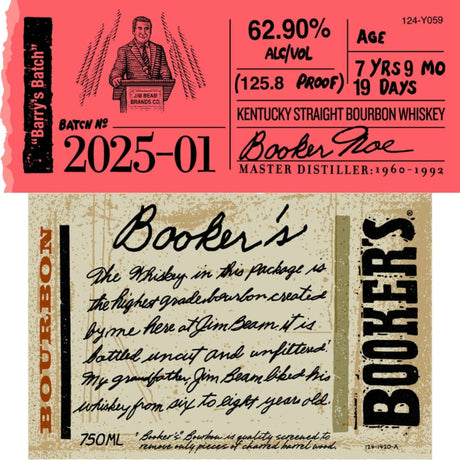 "Barry's Batch"
JIM BEAM
BRANDS CO.
BATCH Nº
2025-01
62.90%
ALC/VOL
(125.8 PROOF)
124-Y059
AGE
7 YRS 9 MO
19 DAYS
KENTUCKY STRAIGHT BOURBON WHISKEY
Booker Noe
MASTER DISTILLER: 1960-1992
BOURBON
Booker's
The Whiskey in this package is
the highest grade bourbon created
by me here at Jim Beam, it is
bottled uncut and unfiltered*
My grandfather Jim Beam liked his
whiskey from six to eight years old.
750ML
* Booker's Bourbon is quality screened to
remove only pieces of charred barrel wood.
BOOKER'S®